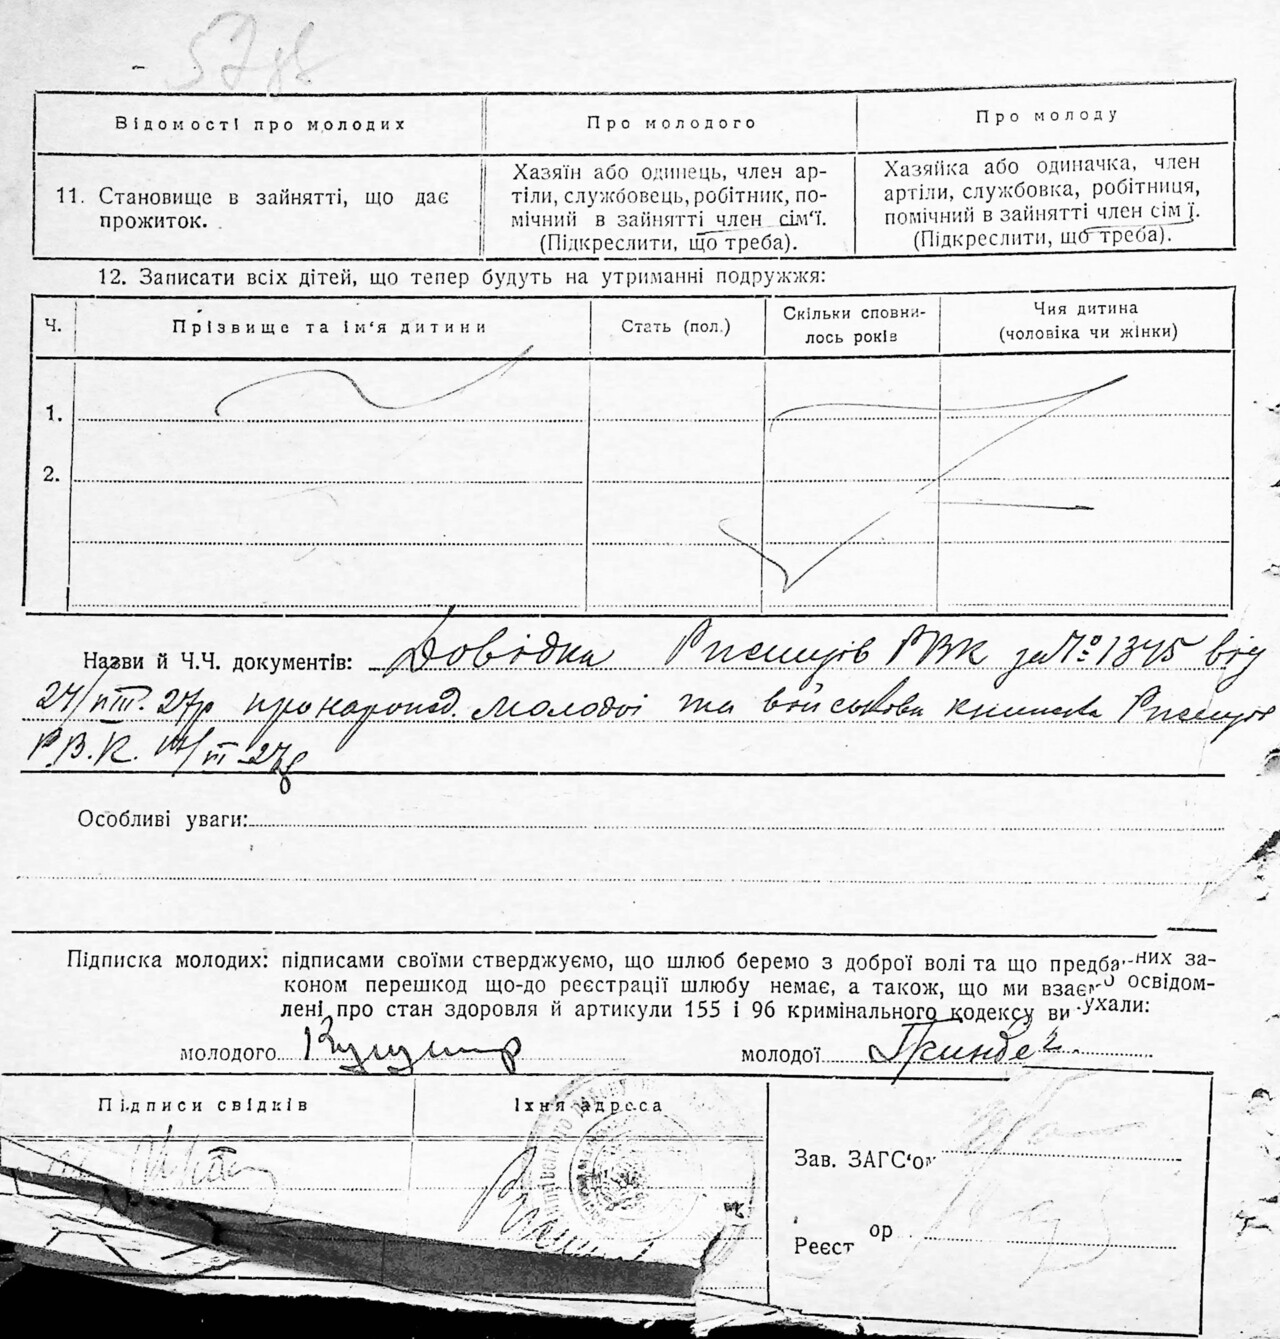 Відомості про молодих
Про молодого
Про молоду
11. Становище в зайнятті, що дає
прожиток.
Хазяїн або одинець, член ар-
тіли, службовець, робітник, по-
мічний в зайнятті член сім'ї.
(Підкреслити, що треба).
Хазяйка або одиначка, член
артіли, службовка, робітниця,
помічний в зайнятті член сім ї.
(Підкреслити, що треба).
12. Записати всіх дітей, що тепер будуть на утриманні подружжя:
Ч.
Прізвище та ім'я дитини
Стать (пол.)
Скільки сповни-
лось років
Чия дитина
(чоловіка чи жінки)
1.
2.
Назви й Ч.Ч. документів: Довідка Ржищів РВК за № 1345 від
27р про молодої та військова книжка
Р.В.К. 27р
Особливі уваги:
Підписка молодих: підписами своїми стверджуємо, що шлюб беремо з доброї волі та що предба них за-
коном перешкод що-до реєстрації шлюбу немає, а також, що ми взаємо освідом-
лені про стан здоровля й артикули 155 і 96 кримінального кодексу ви ухали:
молодого Кушнир
молодої
Підписи свідків
Їхня адреса
Зав. ЗАГС'ом
Реєст ор